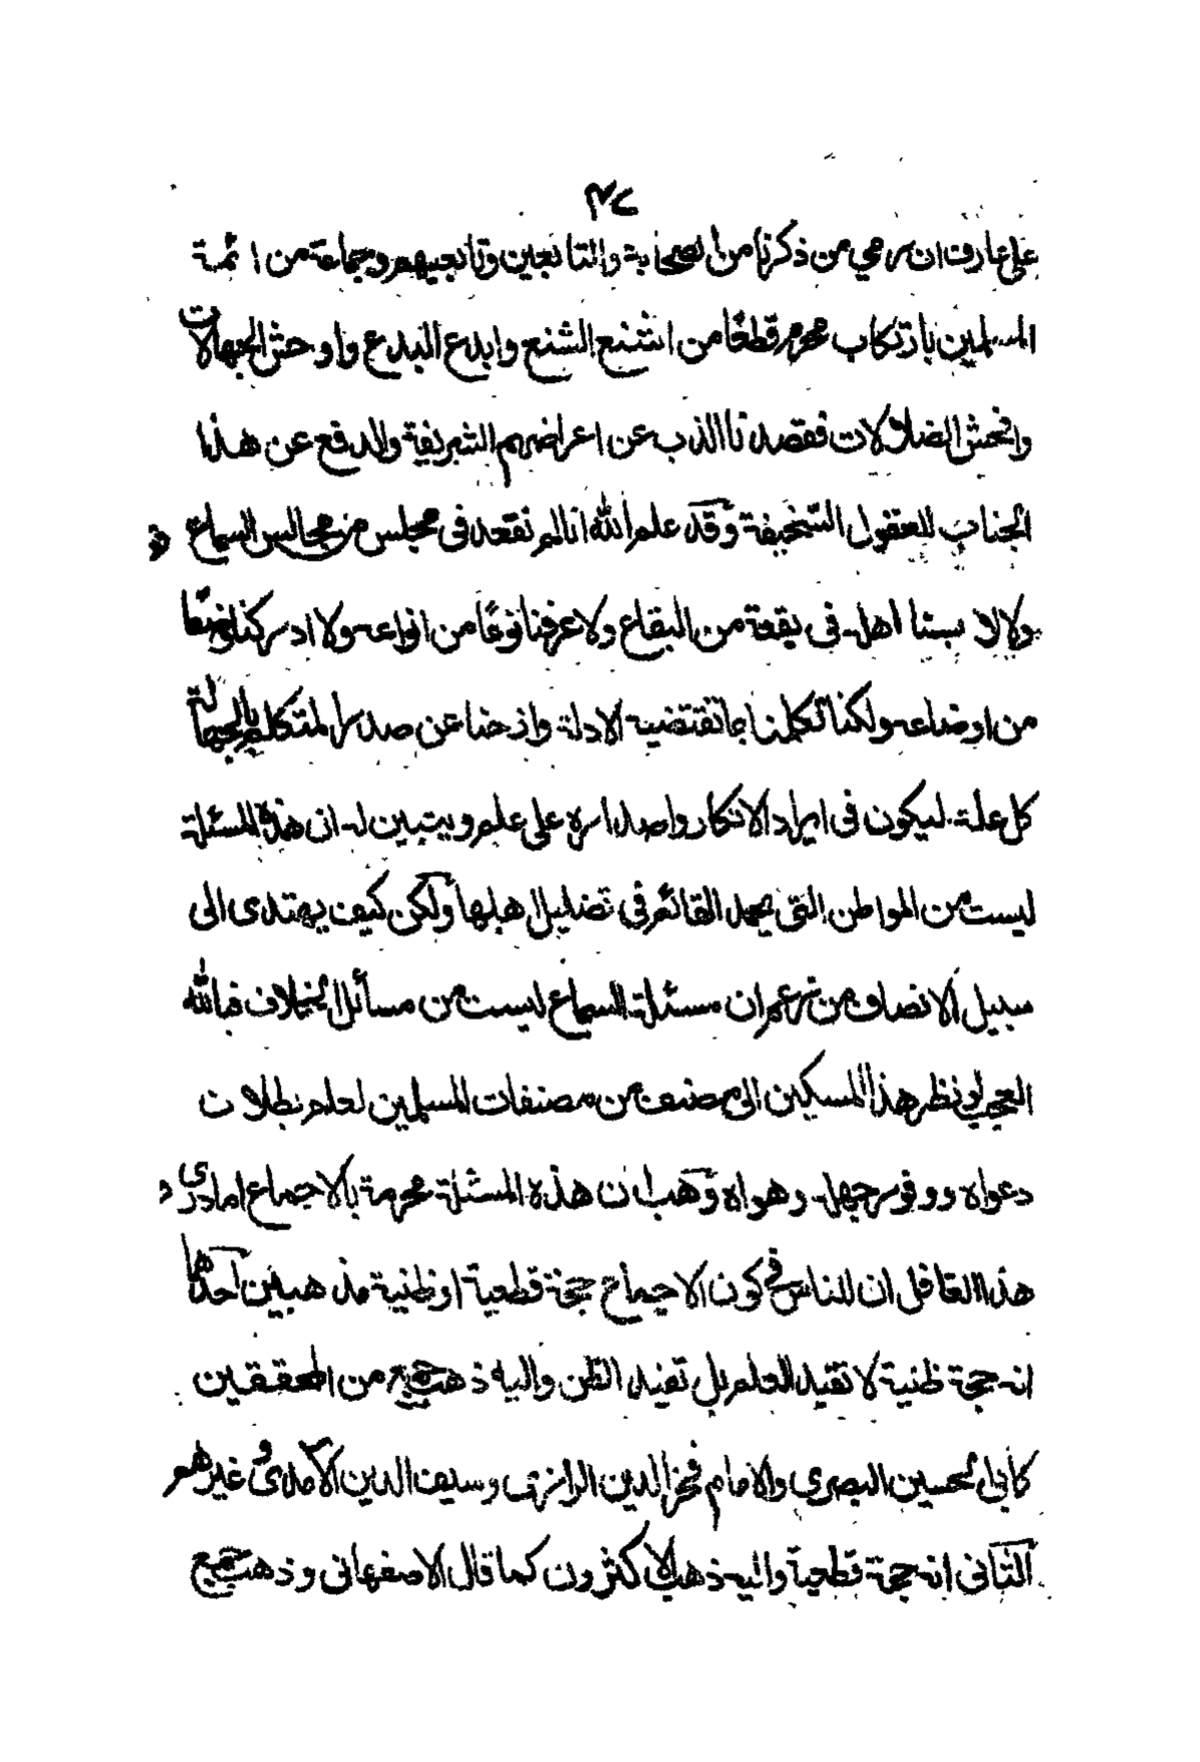 ٢٧
على عارف ان رمي من ذكرنا من الصحابة والتابعين وتابعيهم وجماعة من ائمة
المسلمين بارتكاب محرم قطعًا من اشنع الشنع وابدع البدع واوحش الجهالات
وافحش الضلالات فقصدنا الذب عن اعراضهم الشريفة والدفع عن هذا
الجناب للعقول السخيفة وقد علم الله انا لم نقعد فى مجلس من مجالس السماع
ولا لابسنا اهله فى بقعة من البقاع ولا عرفنا نوعًا من انواعه ولا ادركنا وضعًا
من اوضاعه ولكنا تكلمنا بما تقتضيه الادلة وازحنا عن صدر المتكلم بالجهالة
كل علة ليكون فى ايراد الانكار واصداره على علم ويتبين له ان هذه المسئلة
ليست من المواطن التى يحمد القائم فى تضليل اهلها ولكن كيف يهتدى الى
سبيل الانصاف من زعم ان مسئلة السماع ليست من مسائل الخلاف فبالله
العجب لو نظر هذا المسكين الى مصنف من مصنفات المسلمين لعلم بطلان
دعواه ووفور جهله وهواه وهب ان هذه المسئلة محرمة بالاجماع اما درى
هذا العاقل ان للناس فى كون الاجماع حجة قطعية او ظنية مذهبين احدهما
انه حجة ظنية لا تفيد العلم بل تفيد الظن واليه ذهب جمع من المحققين
كابي الحسين البصري والامام فخر الدين الرازي وسيف الدين الآمدى وغيرهم
الثانى انه حجة قطعية واليه ذهب الاكثرون كما قال الاصفهانى وذهب جمع